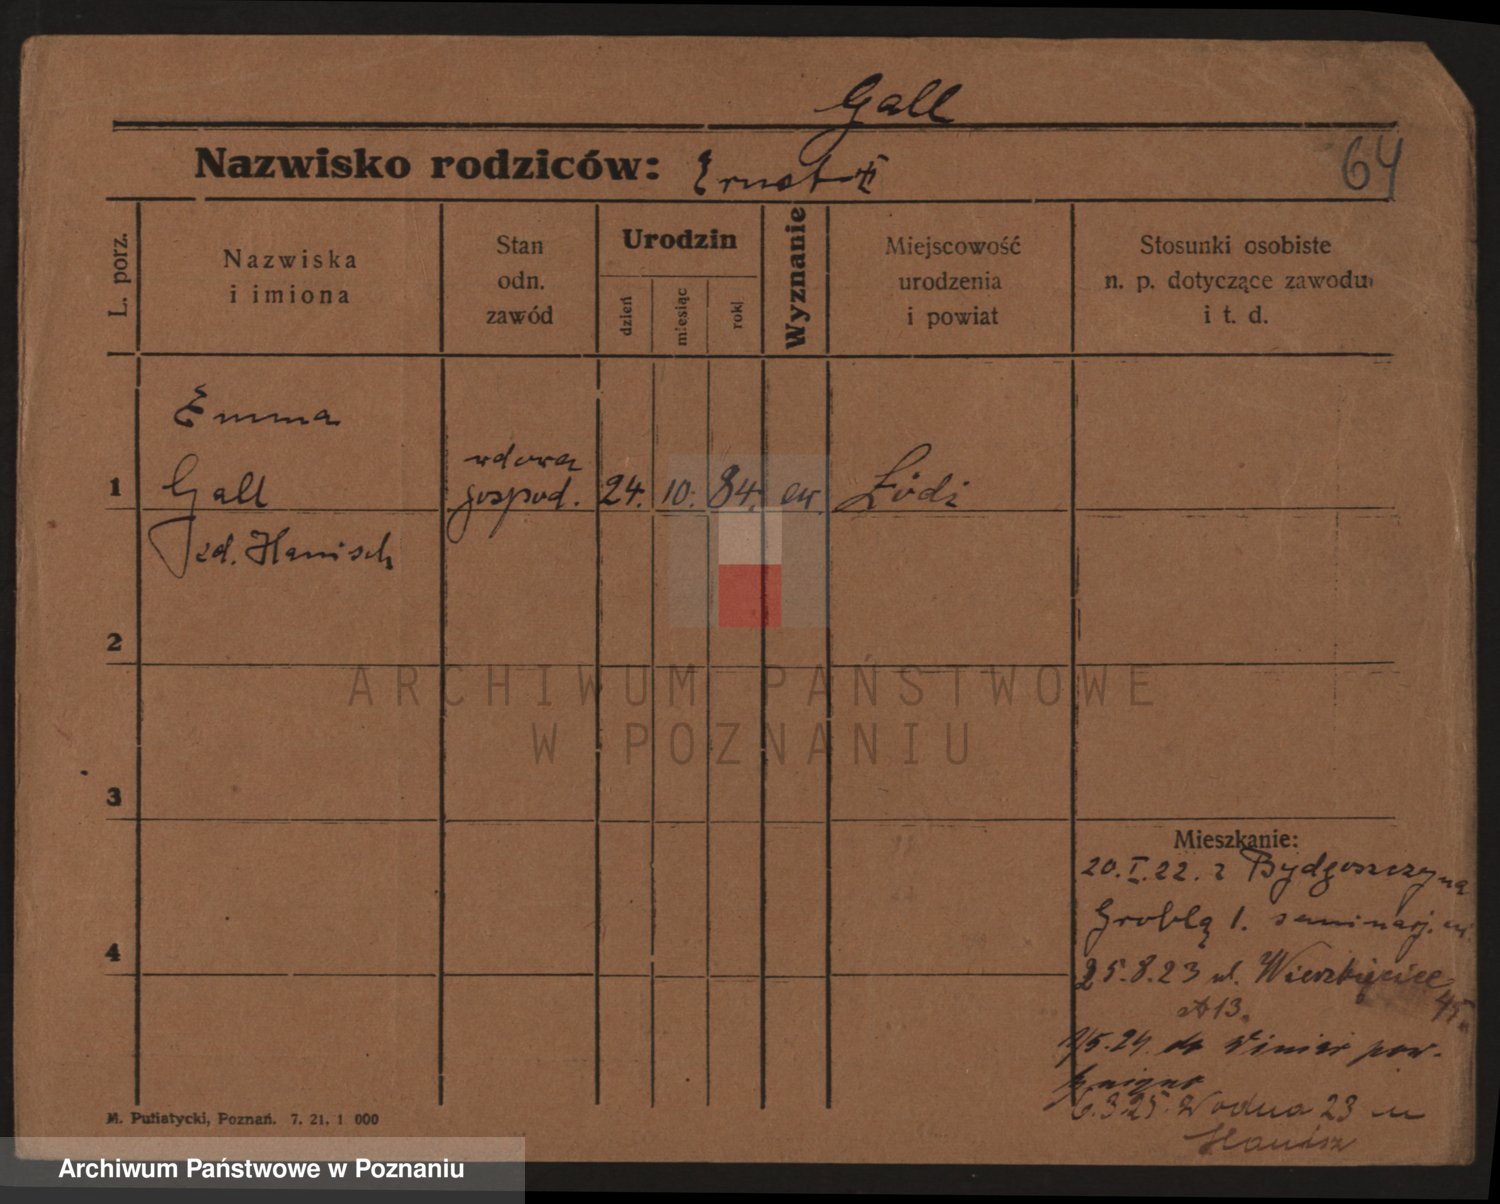 Gall
Nazwisko rodziców: Ernst
64
L. porz.
Nazwiska
i imiona
Stan
odn.
zawód
Urodzin
dzień
miesiąc
rok
Wyznanie
Miejscowość
urodzenia
i powiat
Stosunki osobiste
n. p. dotyczące zawodu
i t. d.
Emma
1 Gall wdowa gospod. 24. 10. 84. ew. Łódź
zd. Hanisch
2
ARCHIWUM PAŃSTWOWE
W POZNANIU
3
Mieszkanie:
20.I.22. z Bydgoszczy na
Groblą 1. seminarj.
4
25.8.23 ul. Wierzbięcice 45
A 13.
5.24. do pow.
6.3.25. Wodna 23 u
Hanisz
M. Putiatycki, Poznań. 7. 21. 1 000
Archiwum Państwowe w Poznaniu